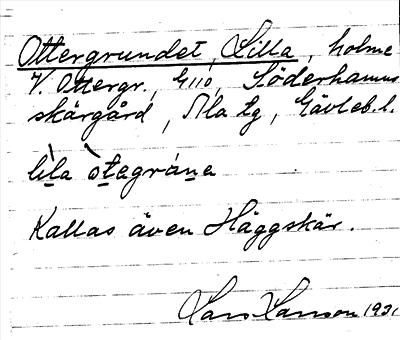 Ottergrundet, Lilla, holme
V. Ottergr., G110, Söderhamns
skärgård, Ala tg, Gävleb. l.
lila òtegrána
Kallas även Häggskär.
Lars Larsson 1931